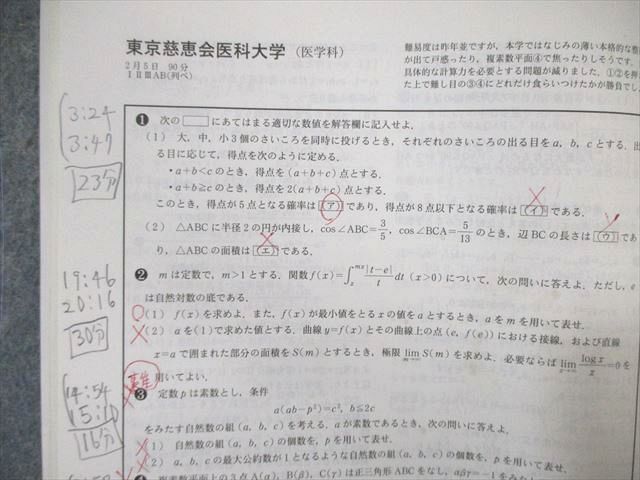 東京慈恵会医科大学（医学科）
2月5日 90分
ⅠⅡⅢAB(列ベ)
難易度は昨年並ですが，本学ではなじみの薄い本格的な整
が出て戸惑ったり，複素数平面④で焦ったりしそうです．
具体的な計算力を必要とする問題が減りました．①②を押
た上で難し目の③④にどれだけ食らいつけたかが勝負でし
3:24
3:47
23分
❶ 次の□にあてはまる適切な数値を解答欄に記入せよ．
(1) 大，中，小3個のさいころを同時に投げるとき，それぞれのさいころの出る目を a, b, c とする．出
る目に応じて，得点を次のように定める．
・a+b<c のとき，得点を (a+b+c) 点とする．
・a+b≧c のとき，得点を 2(a+b+c) 点とする．
このとき，得点が5点となる確率は(ア)であり，得点が8点以下となる確率は(イ)である．
(2) △ABCに半径2の円が内接し，cos∠ABC=3/5, cos∠BCA=5/13 のとき，辺BCの長さは(ウ)であ
り，△ABCの面積は(エ)である．
19:46
20:16
30分
❷ m は定数で，m>1とする．関数 f(x)=∫_x^{mx} |t-e|/t dt (x>0) について，次の問いに答えよ．ただし，e
は自然対数の底である．
(1) f(x) を求めよ．また，f(x) が最小値をとる x の値を a とするとき，a を m を用いて表せ．
(2) a を(1)で求めた値とする．曲線 y=f(x) とその曲線上の点 (e, f(e)) における接線，および直線
x=a で囲まれた部分の面積を S(m) とするとき，極限 lim S(m) を求めよ．必要ならば lim_{x→∞} log x/x=0 を
用いてよい．
14:54
15:10
16分
❸ 定数 p は素数とし，条件
a(ab-p²)=c², b≦2c
をみたす自然数の組 (a, b, c) を考える．a が素数であるとき，次の問いに答えよ．
(1) 自然数の組 (a, b, c) の個数を，p を用いて表せ．
(2) a, b, c の最大公約数が1となるような自然数の組 (a, b, c) の個数を，p を用いて表せ．
複素数平面上の3点 A(α), B(β), C(γ) は正三角形ABCをなし，αβγ=-1 をみたし